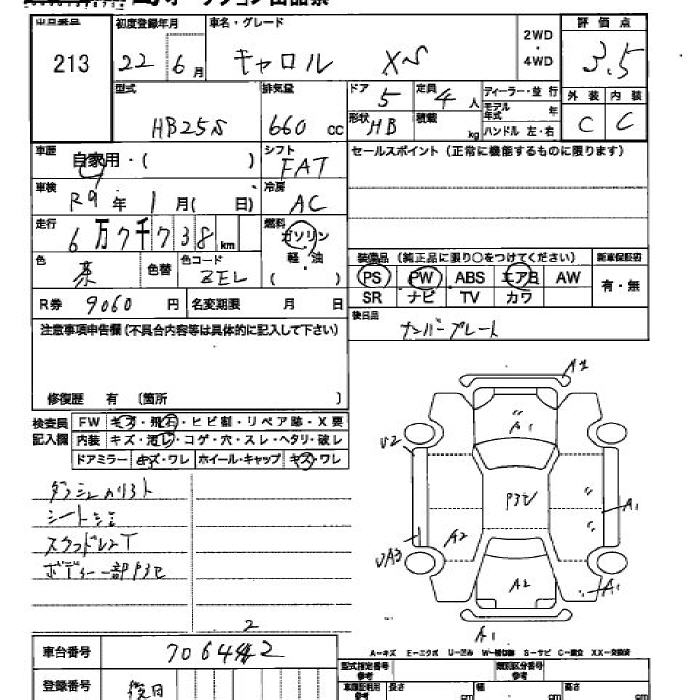 出品番号 初度登録年月 車名・グレード 2WD・4WD 評価点
213 22 6月 キャロル XS 3.5
型式 排気量 ドア 定員 ディーラー・並行 外装 内装
HB25S 660 cc 5 4人 モデル年式 年 C C
形状 HB 積載 kg ハンドル 左・右
車歴 自家用・( ) シフト FAT セールスポイント(正常に機能するものに限ります)
車検 R9年 1月( 日) 冷房 AC
走行 6万7千738km 燃料 ガソリン 軽・油 ( )
色 茶 色替 色コード ZEL
装備品(純正品に限り○をつけてください) 新車保証書
PS PW ABS エアB AW 有・無
SR ナビ TV カワ
R券 9060円 名変期限 月 日
後日品 ナンバープレート
注意事項申告欄(不具合内容等は具体的に記入して下さい)
修復歴 有 〔箇所 〕
検査員記入欄 FW キズ・飛石・ヒビ割・リペア跡・X要
内装 キズ・汚レ・コゲ・穴・スレ・ヘタリ・破レ
ドアミラー キズ・ワレ ホイール・キャップ キズ・ワレ
A2
A1
U2
A1
A2
UA3
A2
A1
A1
2
A-キズ E-エクボ U-凹み W-補修跡 S-サビ C-腐食 XX-交換済
車台番号 706442
型式指定番号 参考 類別区分番号 参考
登録番号 後日
車庫証明用 参考 長さ cm 幅 cm 高さ cm